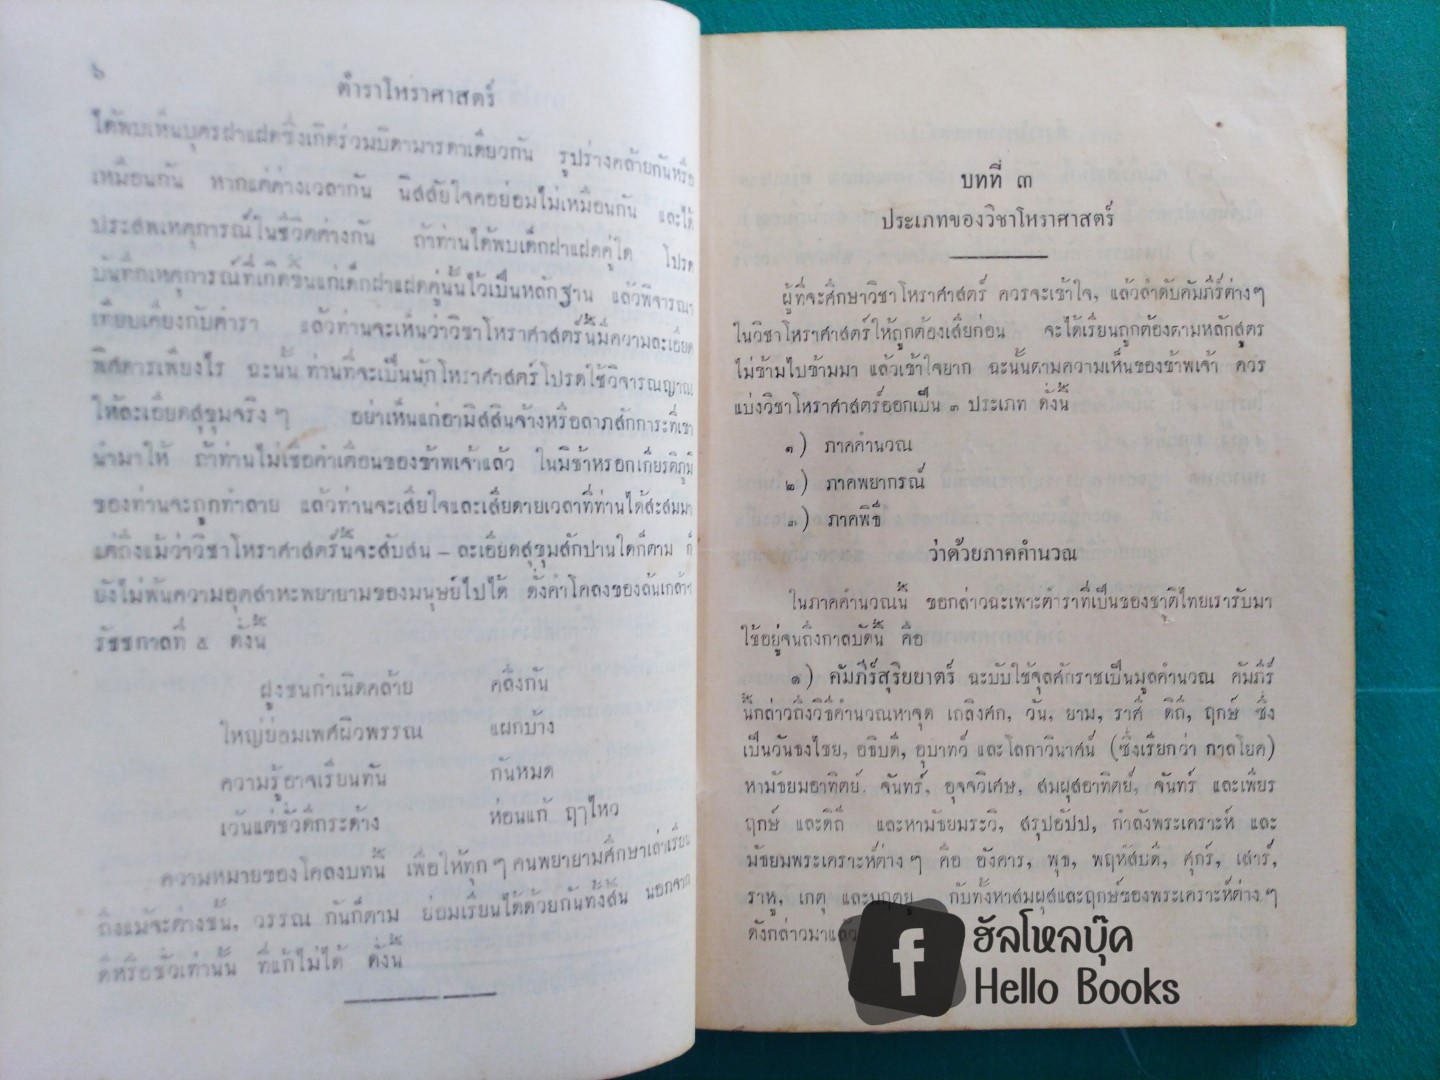 ๖
ตำราโหราศาสตร์
ได้พบเห็นบุตรฝาแฝดซึ่งเกิดร่วมบิดามารดาเดียวกัน รูปร่างคล้ายกันหรือ
เหมือนกัน หากแต่ต่างเวลากัน นิสสัยใจคอย่อมไม่เหมือนกัน และได้
ประสพเหตุการณ์ในชีวิตต่างกัน ถ้าท่านได้พบเด็กฝาแฝดคู่ใด โปรด
บันทึกเหตุการณ์ที่เกิดขึ้นแก่เด็กฝาแฝดคู่นั้นไว้เป็นหลักฐาน แล้วพิจารณา
เทียบเคียงกับตำรา แล้วท่านจะเห็นว่าวิชาโหราศาสตร์นี้มีความละเอียด
พิศดารเพียงไร ฉะนั้นท่านที่จะเป็นนักโหราศาสตร์โปรดใช้วิจารณญาณ
ให้ละเอียดสุขุมจริง ๆ อย่าเห็นแก่อามิสสินจ้างหรือลาภสักการะที่เขา
นำมาให้ ถ้าท่านไม่เชื่อคำเตือนของข้าพเจ้าแล้ว ในมิช้าหรอกเกียรติภูมิ
ของท่านจะถูกทำลาย แล้วท่านจะเสียใจและเสียดายเวลาที่ท่านได้สะสมมา
แต่ถึงแม้ว่าวิชาโหราศาสตร์นี้จะสับสน – ละเอียดสุขุมสักปานใดก็ตาม ก็
ยังไม่พ้นความอุตสาหะพยายามของมนุษย์ไปได้ ดั่งคำโคลงของล้นเกล้าฯ
รัชชกาลที่ ๕ ดั่งนี้
ฝูงชนกำเนิดคล้าย คลึงกัน
ใหญ่ย่อมเพศผิวพรรณ แผกบ้าง
ความรู้อาจเรียนทัน กันหมด
เว้นแต่ชั่วดีกระด้าง ห่อนแก้ ฤๅไหว
ความหมายของโคลงบทนี้ เพื่อให้ทุก ๆ คนพยายามศึกษาเล่าเรียน
ถึงแม้จะต่างชั้น, วรรณ กันก็ตาม ย่อมเรียนได้ด้วยกันทั้งสิ้น นอกจาก
ดีหรือชั่วเท่านั้น ที่แก้ไม่ได้ ดั่งนี้
บทที่ ๓
ประเภทของวิชาโหราศาสตร์
ผู้ที่จะศึกษาวิชาโหราศาสตร์ ควรจะเข้าใจ, แล้วลำดับคัมภีร์ต่าง ๆ
ในวิชาโหราศาสตร์ให้ถูกต้องเสียก่อน จะได้เรียนถูกต้องตามหลักสูตร
ไม่ข้ามไปข้ามมา แล้วเข้าใจยาก ฉะนั้นตามความเห็นของข้าพเจ้า ควร
แบ่งวิชาโหราศาสตร์ออกเป็น ๓ ประเภท ดั่งนี้
๑) ภาคคำนวณ
๒) ภาคพยากรณ์
๓) ภาคพิธี
ว่าด้วยภาคคำนวณ
ในภาคคำนวณนี้ ขอกล่าวฉะเพาะตำราที่เป็นของชาติไทยเรารับมา
ใช้อยู่จนถึงกาลบัดนี้ คือ
๑) คัมภีร์สุริยยาตร์ ฉะบับใช้จุลศักราชเป็นมูลคำนวณ คัมภีร์
นี้กล่าวถึงวิธีคำนวณหาจุด เถลิงศก, วัน, ยาม, ราศี ดิถี, ฤกษ์ ซึ่ง
เป็นวันธงไชย, อธิบดี, อุบาทว์ และโลกาวินาศน์ (ซึ่งเรียกว่า กาลโยค)
หามัธยมอาทิตย์, จันทร์, อุจจวิเศษ, สมผุสอาทิตย์, จันทร์ และเพียร
ฤกษ์ และดิถี และหามัธยมระวิ, สรุปอัปป, กำลังพระเคราะห์ และ
มัธยมพระเคราะห์ต่าง ๆ คือ อังคาร, พุธ, พฤหัสบดี, ศุกร์, เสาร์,
ราหู, เกตุ และมฤตยู กับทั้งหาสมผุสและฤกษ์ของพระเคราะห์ต่าง ๆ
ดังกล่าวมาแล้ว
f
ฮัลโหลบุ๊ค
Hello Books